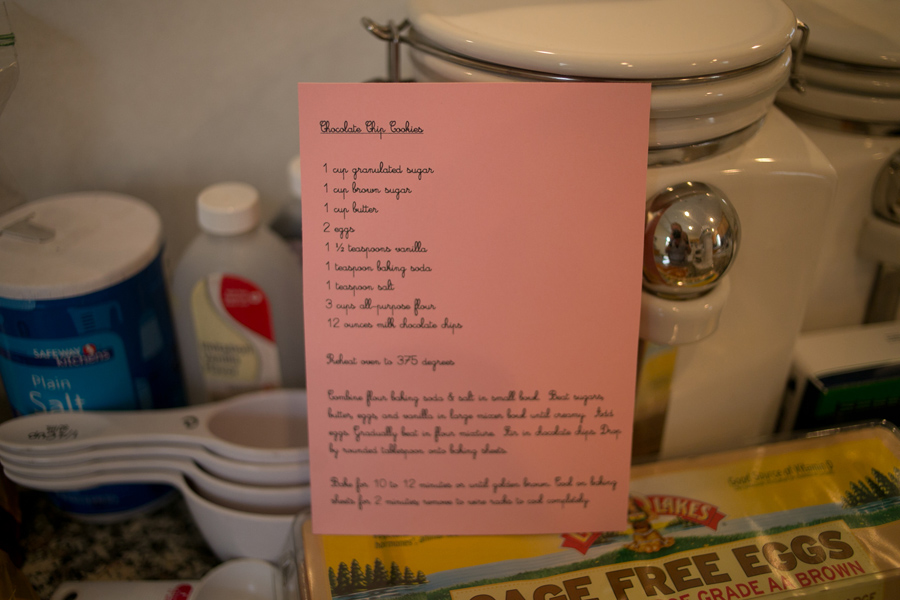 Chocolate Chip Cookies
1 cup granulated sugar
1 cup brown sugar
1 cup butter
2 eggs
1 ½ teaspoons vanilla
1 teaspoon baking soda
1 teaspoon salt
3 cups all-purpose flour
12 ounces milk chocolate chips
Reheat oven to 375 degrees
Combine flour baking soda & salt in small bowl. Beat sugars,
butter, eggs and vanilla in large mixer bowl until creamy. Add
eggs Gradually beat in flour mixture. in chocolate chips. Drop
by rounded tablespoon onto baking sheets.
Bake for 10 to 12 minutes or until golden brown. Cool on baking
sheets for 2 minutes; remove to wire racks to cool completely.
SAFEWAY
kitchens
Plain
Salt
LAKES
CAGE FREE EGGS
GRADE AA BROWN